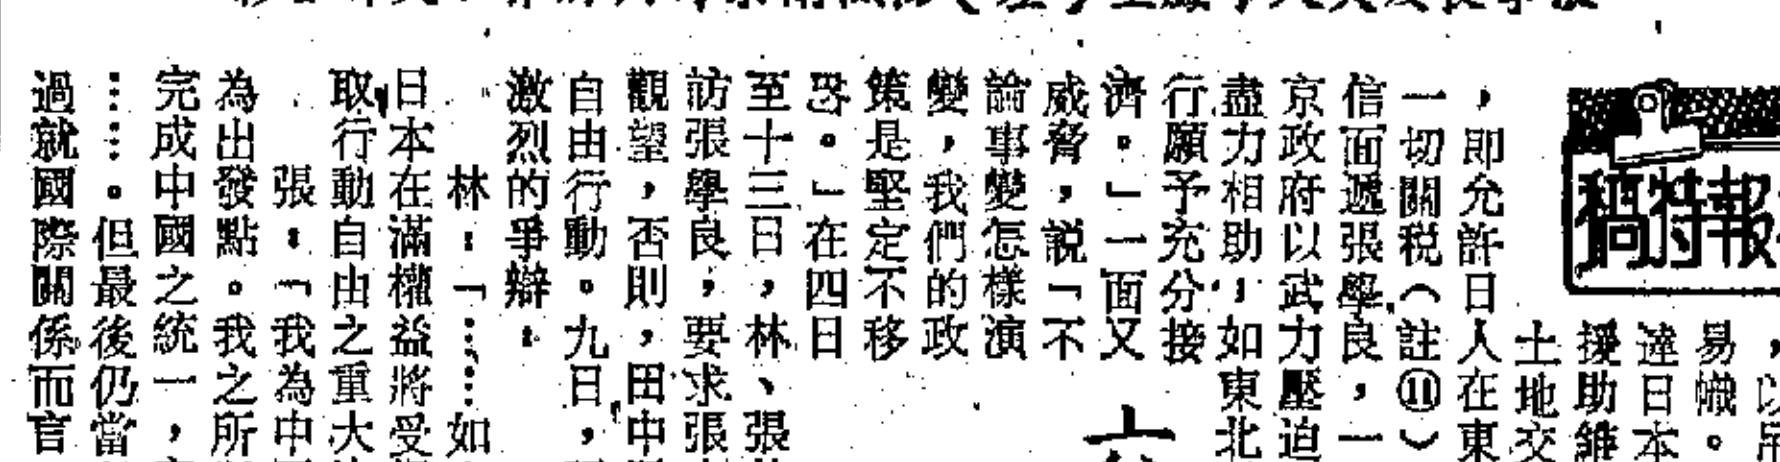 報特稿
，以
易幟。
達日本
援助維
土地交
，即允許日人在東
一切關税（註⑪）
信面遞張學良，一
京政府以武力壓迫
盡力相助，如東北
行願予充分接
濟。」一面又
威脅，説「不
論事變怎樣演
變，我們的政
策是堅定不移
。」在四日
至十三日，林、張
訪張學良，要求張
觀望，否則，田中
自由行動。九日，
激烈的爭辯：
林：「……如
日本在滿權益將受
取行動自由之重大
張：「我為中
為出發點。我之所
完成中國之統一，
……。但最後仍當
過就國際關係而言